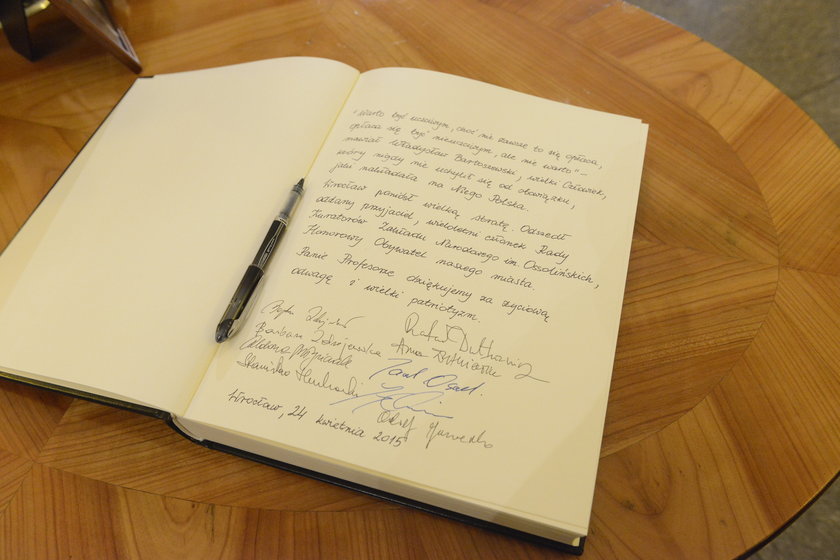 "Warto być uczciwym, choć nie zawsze to się opłaca,
opłaca się być nieuczciwym, ale nie warto" –
mawiał Władysław Bartoszewski, wielki Człowiek,
który nigdy nie uchylił się od obowiązku,
jaki nakładała na Niego Polska.
Wrocław poniósł wielką stratę. Odszedł
oddany przyjaciel, wieloletni członek Rady
Kuratorów Zakładu Narodowego im. Ossolińskich,
Honorowy Obywatel naszego miasta.
Panie Profesorze dziękujemy za życiową
odwagę i wielki patriotyzm.
Rafał Dutkiewicz
Barbara Zdrojewska
Anna
Stanisław Huskowski
Wrocław, 24 kwietnia 2015